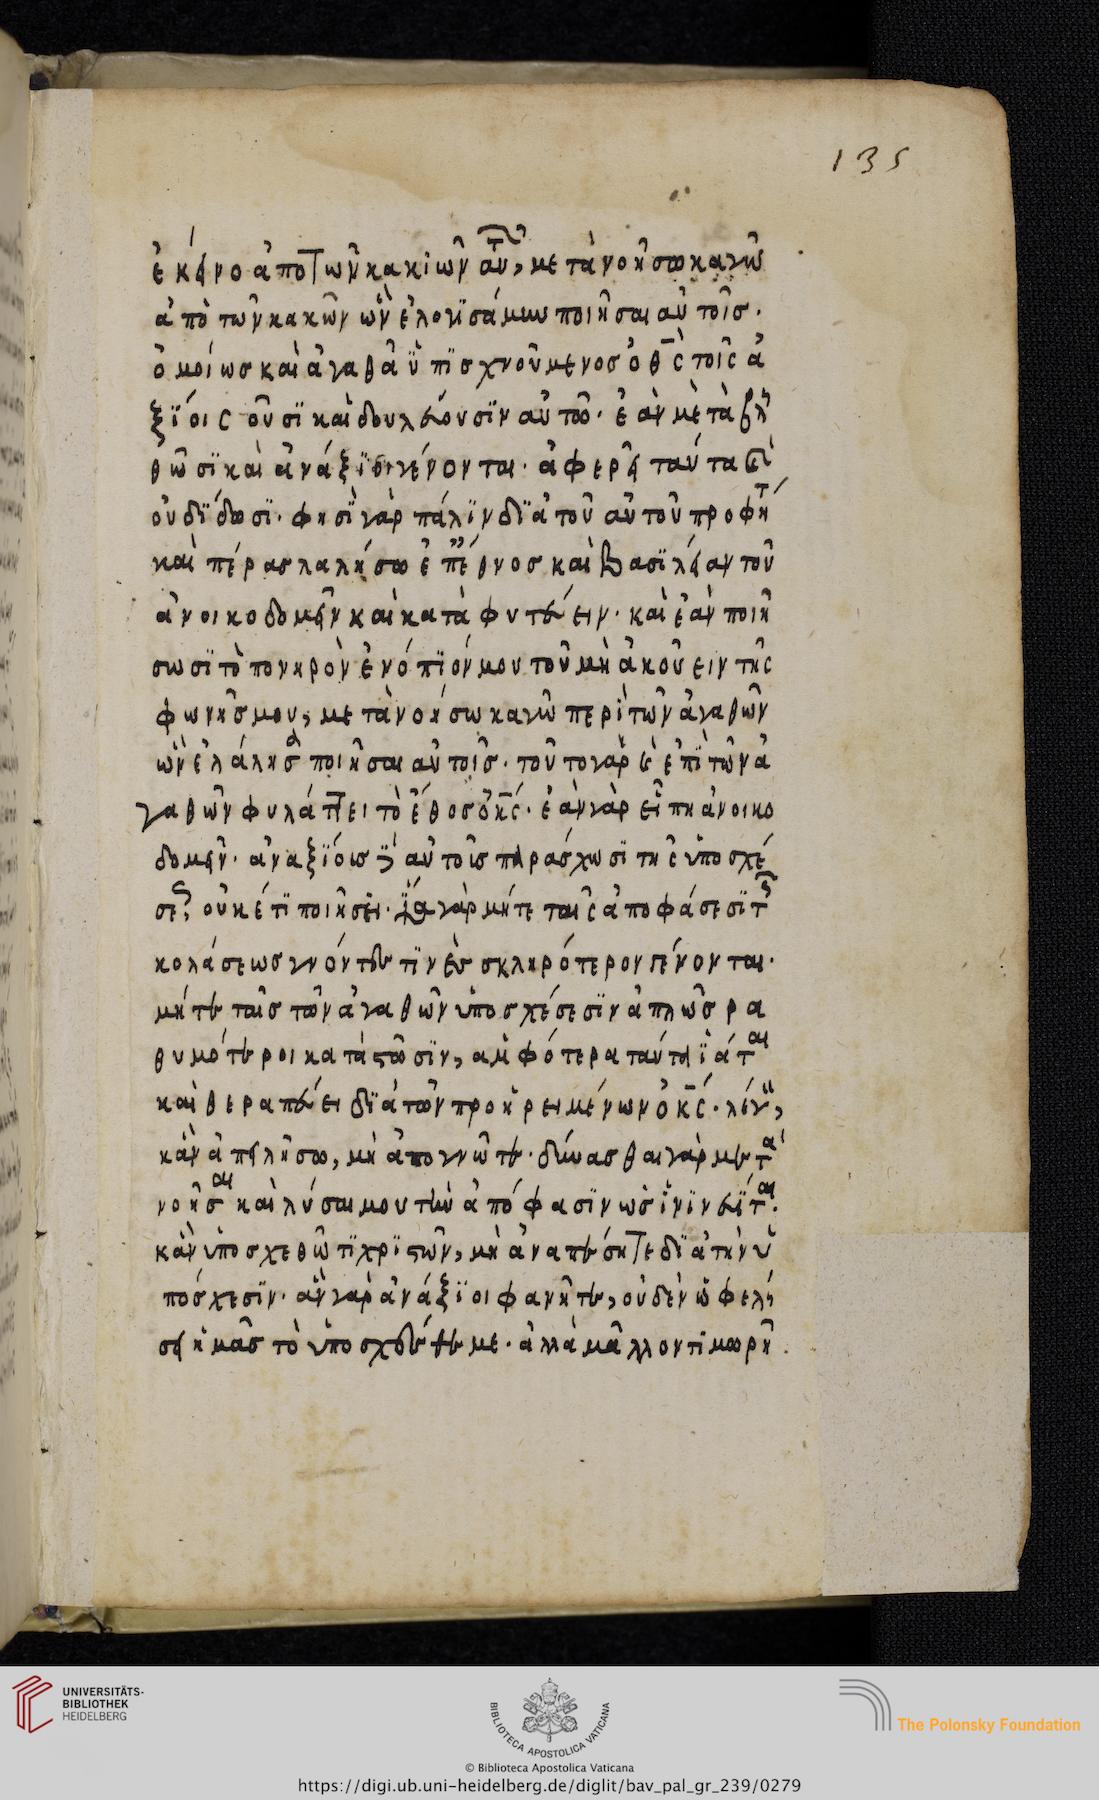 135
ἐκεῖνο ἀπὸ τῶν κακιῶν αὐτῶν, μετὰνοήσω καγῶ
ἀπὸ τῶν κακῶν ὧν ἐλογϊσάμην ποιῆσαι αὐτοῖσ.
ὁμοίωσ καὶ ἀγαθἀ ὑπϊσχνούμενοσ ὁ θς τοῖς ἀ
ξϊόις οὖσϊ και δουλεύουσϊν αὐτῶ. ἐὰν μὲτὰβλη
θῶσϊ καὶ ἀνάξϊοι γένονται. ἀφερεῖ ταῦτα καὶ
οὐ δϊδωσϊ. φησϊ γὰρ πάλϊν δϊἀ τοῦ αὐτοῦ προφήτ
καὶ πέρασ λαλήσω ἐπἔθνοσ καὶ Βασϊλείαν τοῦ
ἀνοικοδομεῖν καὶ κατὰφυτεύειν. καὶ ἐὰν ποιή
σωσϊ τὸ πονηρὸν ἐνόπϊόν μου τοῦ μὴ ἀκούειν τῆς
φωνῆσ μου, μετὰνοήσω καγῶ περὶ τῶν ἀγαθῶν
ὧν ἐλάλησα ποιῆσαι αὐτοῖσ. τοῦτο γὰρ καὶ ἐπϊ τῶν ἀ
γαθῶν φυλάττει τὸ ἔθοσ ὁ κς. ἐὰν γὰρ εἴπη ἀνοικο
δομεῖν. ἀναξϊόισ δὲ αὐτοῖσ παράσχωσϊ τῆς ὑποσχέ
σεως, οὐκέτϊ ποιήσει. ἵνα γὰρ μήτε ταῖς ἀποφάσεσϊ τῆς
κολάσεωσ γνόντες τϊνὲς σκληρότερον γένονται.
μήτε ταῖσ τῶν ἀγαθῶν ὑποσχέσεσϊν ἁπλῶσ ρα
θυμότεροι κατὰστῶσϊν, αμφότερα ταύτα ϊάται
καὶ θεραπεύει δϊἀ τῶν προηρειμένων ὁ κς. λέγων,
κἀν ἀπειλήσω, μὴ ἀπογνῶτε. δύνασθαι γὰρ μετα
νοῆσαι καὶ λύσαι μου τὴν ἀπόφασϊν ωσ
κἀν ὑποσχεθῶ τϊ χρϊστῶν, μὴ ἀναπέσητε δϊἀ τὴν ὑ
πόσχεσϊν. ἀν γὰρ ἀνάξϊοι φανῆτε, οὐδὲν ὠφελή
σει ἡμᾶσ τὸ ὑποσχέσθε με. ἀλλὰ μᾶλλον τιμωρή
UNIVERSITÄTS-
BIBLIOTHEK
HEIDELBERG
BIBLIOTECA APOSTOLICA VATICANA
The Polonsky Foundation
© Biblioteca Apostolica Vaticana
https://digi.ub.uni-heidelberg.de/diglit/bav_pal_gr_239/0279